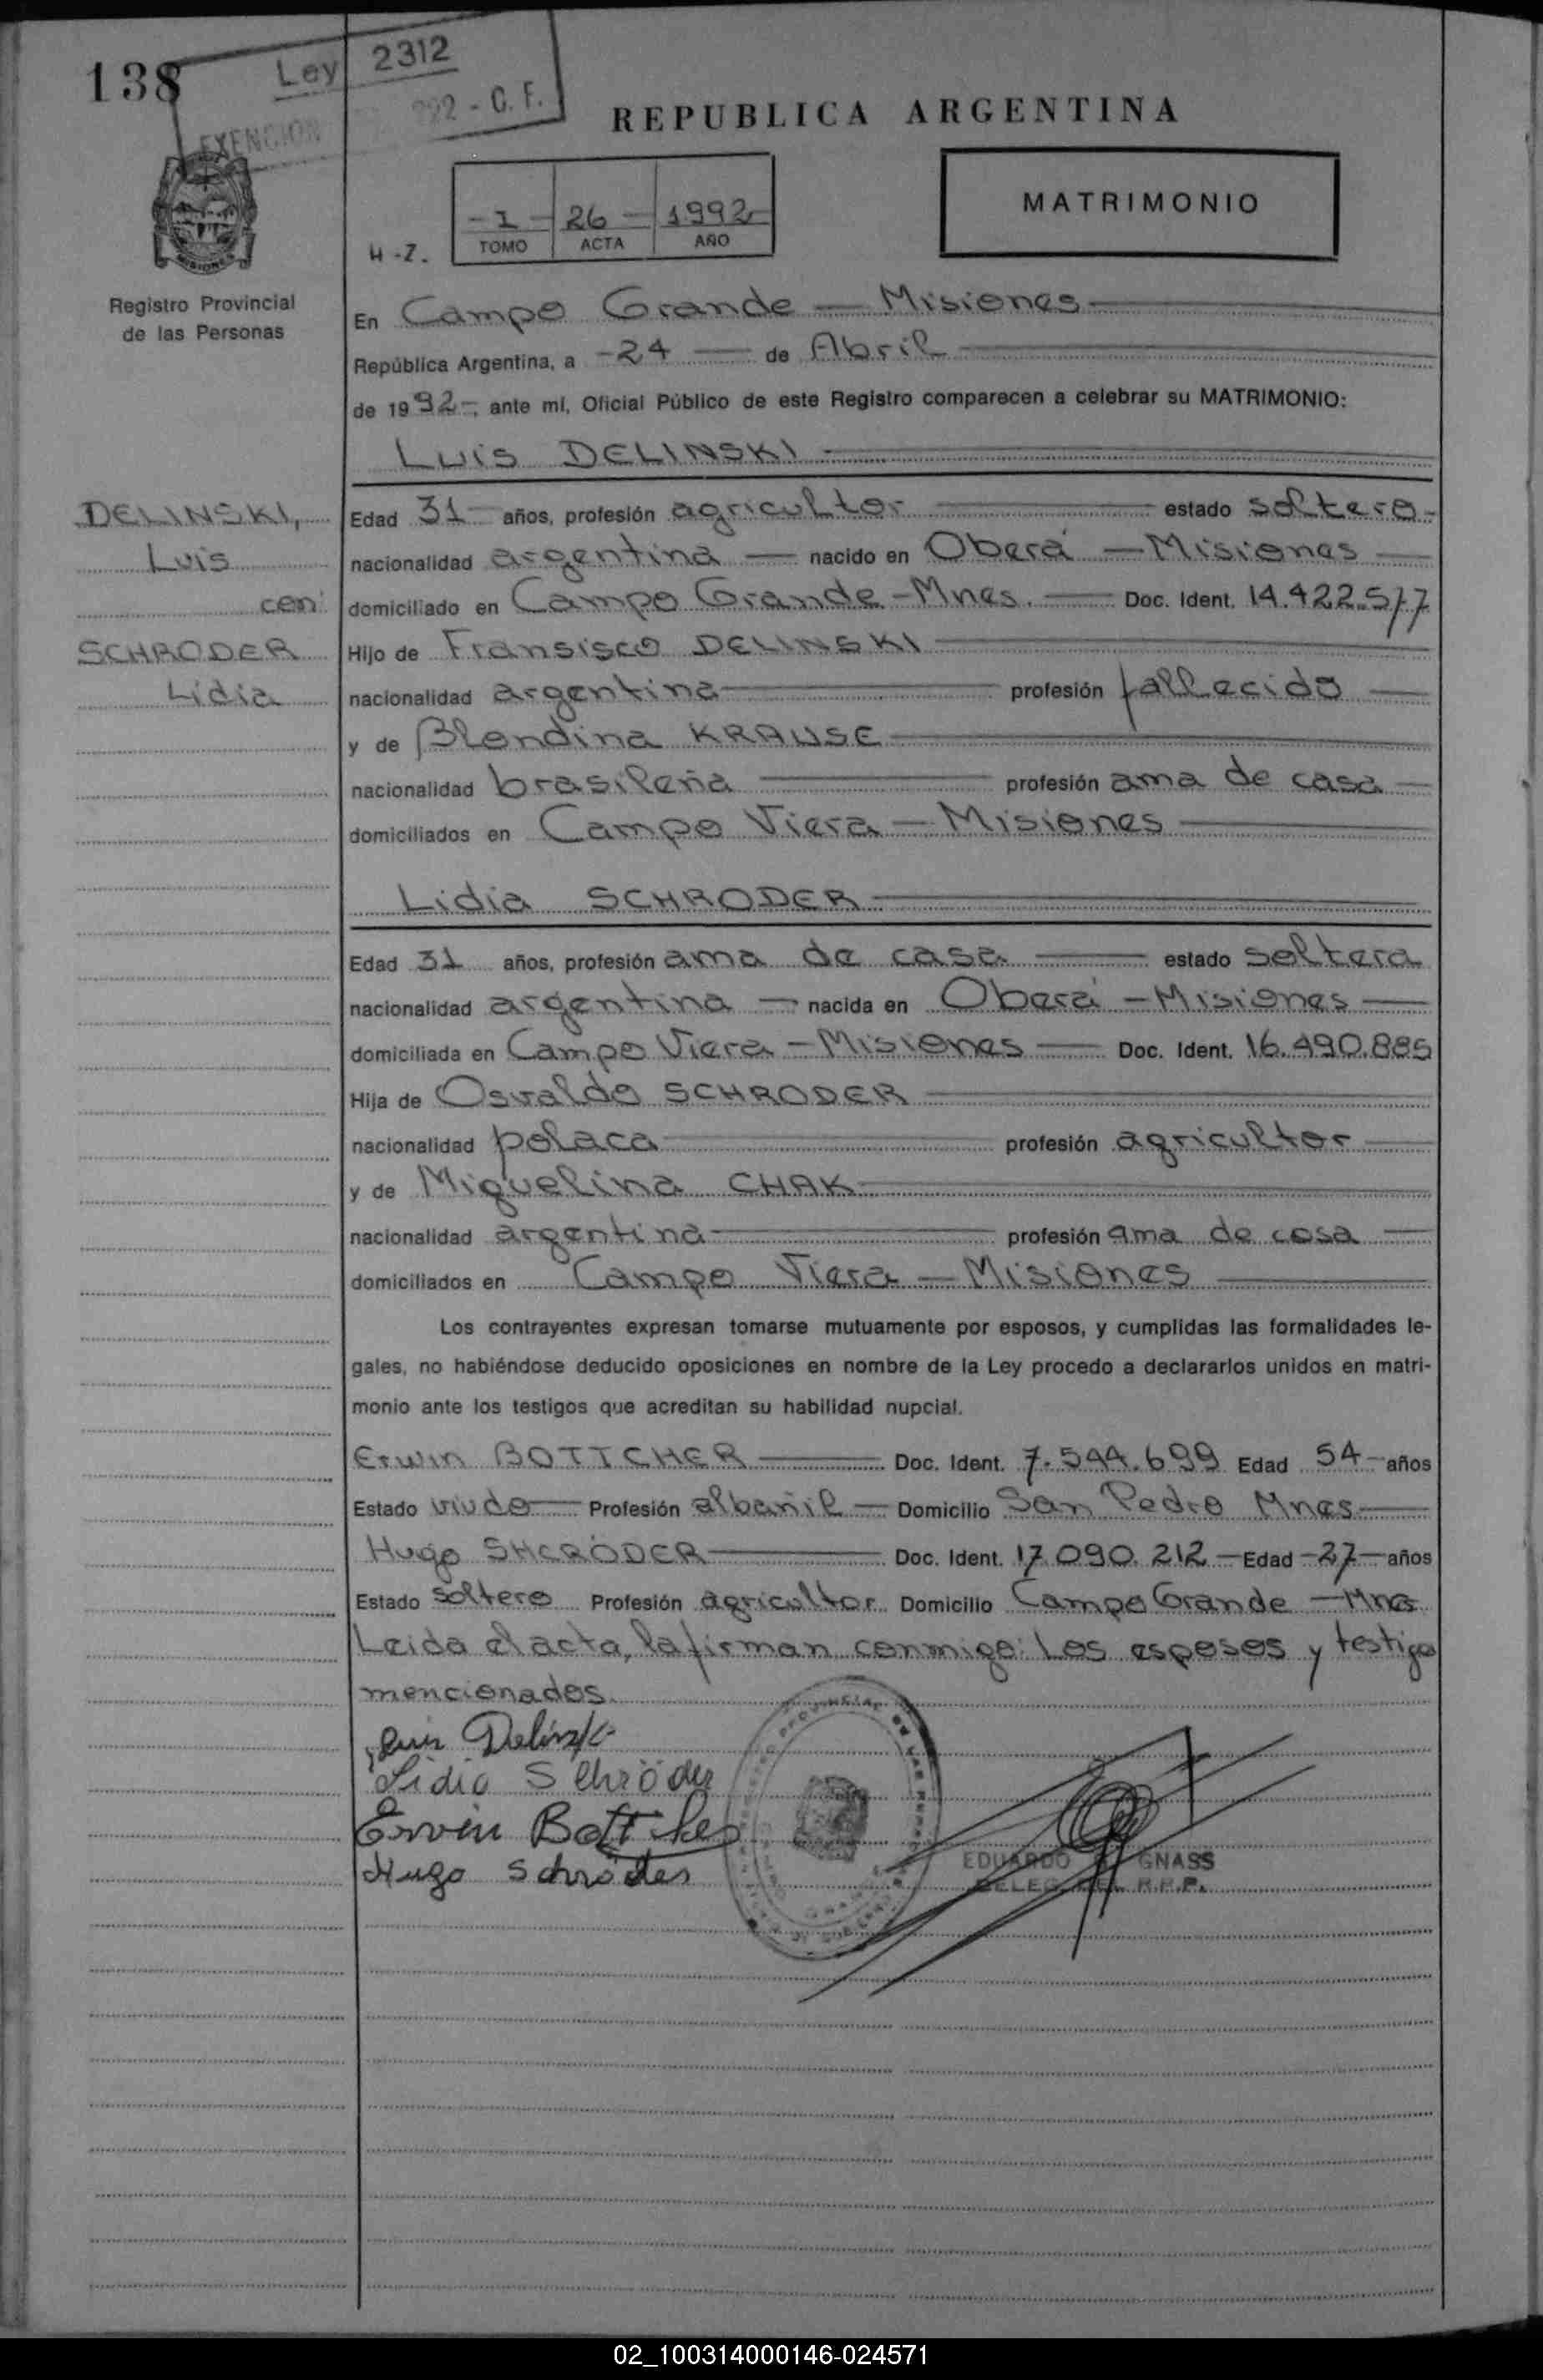 138
Ley 2312
EXENCION
992 - C. F.
REPUBLICA ARGENTINA
MATRIMONIO
- 1 - 26 - 1992
H - 7. TOMO ACTA AÑO
MISIONES
Registro Provincial
de las Personas
En Campo Grande — Misiones
República Argentina, a - 24 — de Abril
de 1992-, ante mí, Oficial Público de este Registro comparecen a celebrar su MATRIMONIO:
Luis DELINSKI
DELINSKI,
Luis
con
SCHRODER
Lidia
Edad 31 años, profesión agricultor — estado soltero -
nacionalidad argentina — nacido en Oberá — Misiones
domiciliado en Campo Grande - Mnes. — Doc. Ident. 14.422.577
Hijo de Fransisco DELINSKI
nacionalidad argentina — profesión fallecido
y de Blondina KRAUSE
nacionalidad brasileña — profesión ama de casa
domiciliados en Campo Viera — Misiones
Lidia SCHRODER
Edad 31 años, profesión ama de casa — estado soltera
nacionalidad argentina — nacida en Oberá — Misiones
domiciliada en Campo Viera — Misiones — Doc. Ident. 16.490.885
Hija de Osvaldo SCHRODER
nacionalidad polaca — profesión agricultor
y de Miguelina CHAK
nacionalidad argentina — profesión ama de casa
domiciliados en Campo Viera — Misiones
Los contrayentes expresan tomarse mutuamente por esposos, y cumplidas las formalidades le-
gales, no habiéndose deducido oposiciones en nombre de la Ley procedo a declararlos unidos en matri-
monio ante los testigos que acreditan su habilidad nupcial.
Erwin BOTTCHER — Doc. Ident. 7.544.699 Edad 54 - años
Estado viudo — Profesión albañil — Domicilio San Pedro Mnes
Hugo SHCRÖDER — Doc. Ident. 17.090.212 — Edad - 27 — años
Estado soltero Profesión agricultor Domicilio Campo Grande — Mnes
Leida el acta, la firman conmigo: Los esposos y testigos
mencionados.
Luis Delinski
Lidia Schröder
Erwin Bottcher
Hugo Schröder
EDUARDO GNASS
DELEG. DEL R.P.P.
02_100314000146-024571